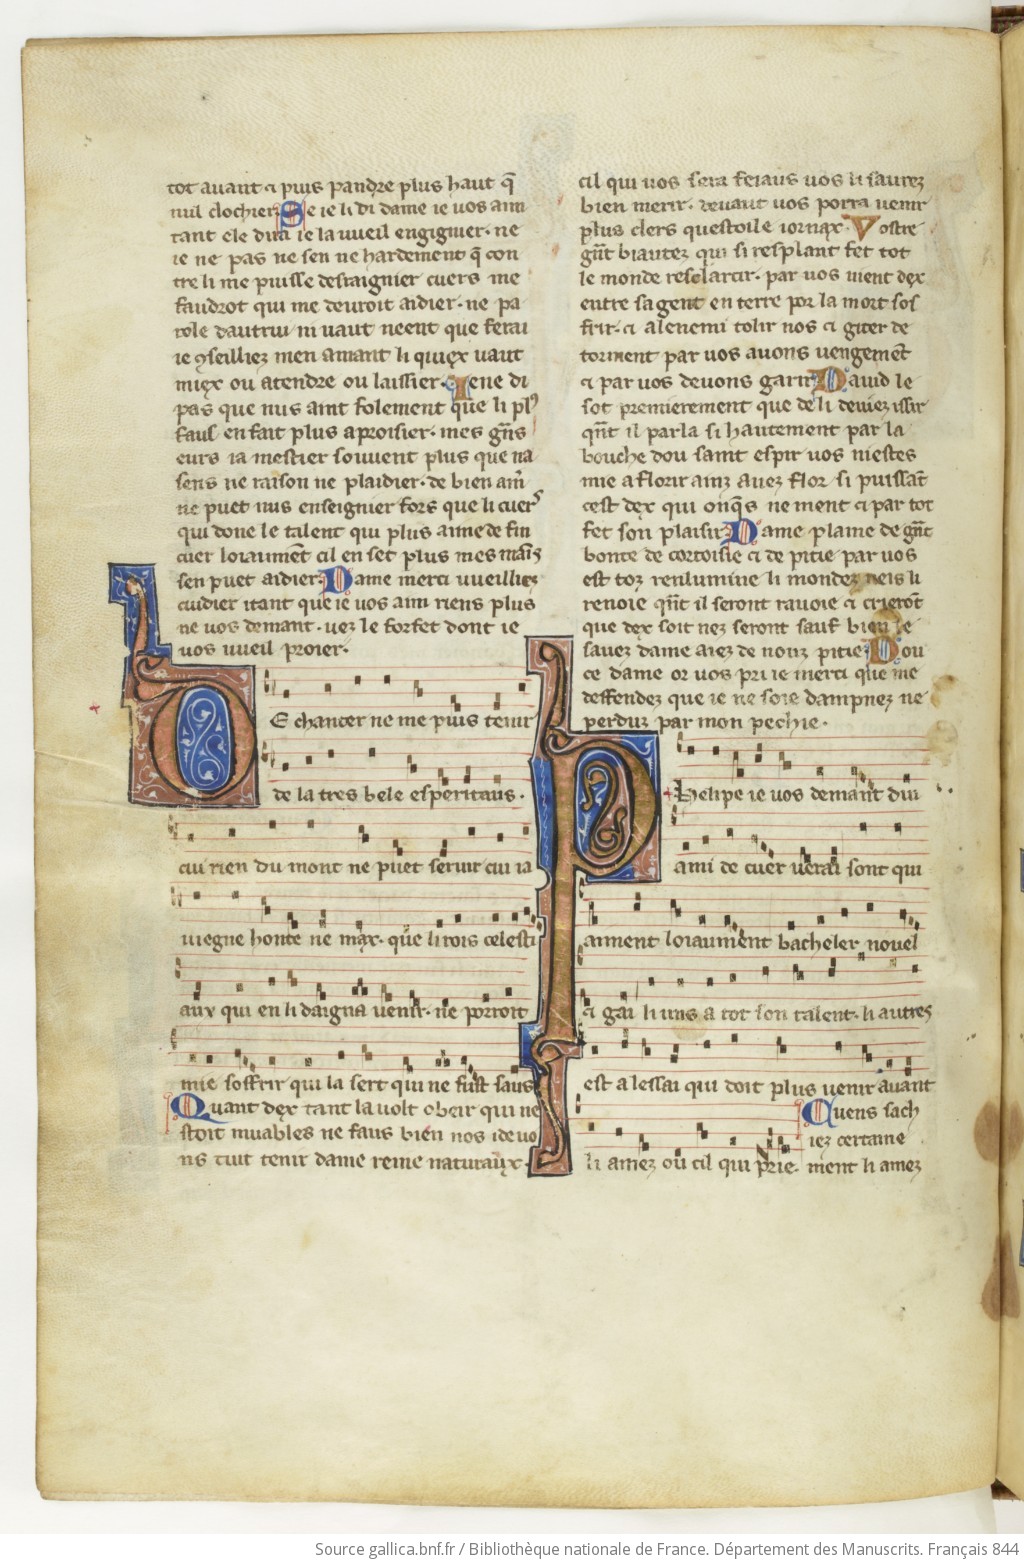 tot auant ⁊ puis pandre plus haut q̃
nul clochier. Se ie li di dame ie uos aim
tant ele dira ie la uueil engignier. ne
ie ne pas ne sen ne hardement q̃ con
tre li me puisse desraignier cuers me
faudrot qui me deuroit aidier. ne pa
role dautrui ni uaut neent que ferai
ie ꝯseilliez men amant li quiex uaut
miex ou atendre ou laissier. Iene di
pas que nus aint folement que li plꝰ
faus en fait plus a proisier. mes gñs
eurs ia mestier souuent plus que na
sens ne raison ne plaidier. de bien am̃
ne puet nus enseignier fors que li cuers
qui done le talent qui plus aime de fin
cuer loiaumẽt cil en set plus mes mains
sen puet aidier. Dame merci uueilliez
cuidier itant que ie uos aim riens plus
ne uos demant. uez le forfet dont ie
uos uueil proier.
DE chanter ne me puis tenir
de la tres bele esperitaus.
cui rien du mont ne puet seruir cui ia
uiegne honte ne max. que li rois celesti
aux qui en li daigna uenir. ne porroit
mie soffrir qui la sert qui ne fust saus
Quant dex tant la uolt obeir qui ne
stoit muables ne faus bien nos i deuo
ns tuit tenir dame reine naturaux.
cil qui uos sera feiaus uos li saurez
bien merir. deuant uos porra uenir
plus clers questoile iornax. Vostre
gñt biautez qui si resplant fet tot
le monde resclarcir. par uos uient dex
entre sa gent en terre por la mort sof
frir. ⁊ a lenemi tolir nos ⁊ giter de
torment par uos auons uengemẽt
⁊ par uos deuons garir. Dauid le
sot premierement que de li deuiez issir
qñt il parla si hautement par la
bouche dou saint espir uos niestes
mie a florir ainz auez flor si puissãt
cest dex qui onq̃s ne ment ⁊ par tot
fet son plaisir. Dame plaine de gñt
bonte de cortoisie ⁊ de pitie par uos
est toz renlumine li mondez neis li
renoie qñt il seront rauoie ⁊ crierõt
que dex soit nez seront sauf bien le
sauez dame aiez de nouz pitie. Dou
ce dame or uos pri ie merci que me
deffendez que ie ne soie dampnez ne
perduz par mon pechie.
PHelipe ie uos demant dui
ami de cuer uerai sont qui
aiment loiaument bacheler nouel
⁊ gai li uns a tot son talent. li autres
est a lessai qui doit plus uenir auant
li amez ou cil qui prie.
Quens sach
iez certaine
ment li amez
Source gallica.bnf.fr / Bibliothèque nationale de France. Département des Manuscrits. Français 844